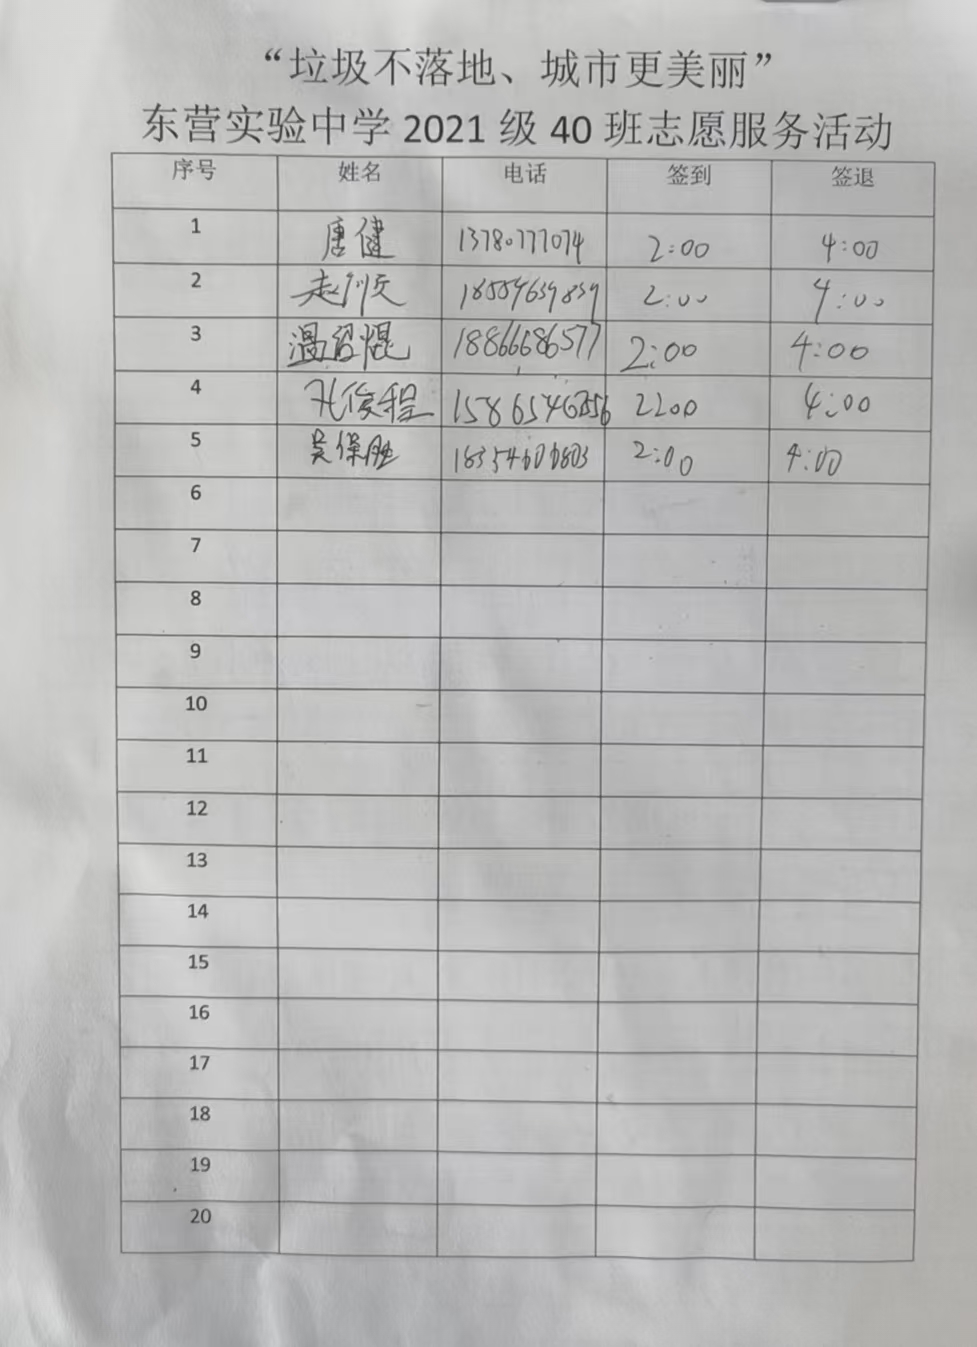 “垃圾不落地、城市更美丽”
东营实验中学 2021 级 40 班志愿服务活动
序号 姓名 电话 签到 签退
1 唐健 13780777074 2:00 4:00
2 2:00 4:00
3 18866686577 2:00 4:00
4 孔俊程 2:00 4:00
5 吴保胜 2:00 4:00
6
7
8
9
10
11
12
13
14
15
16
17
18
19
20